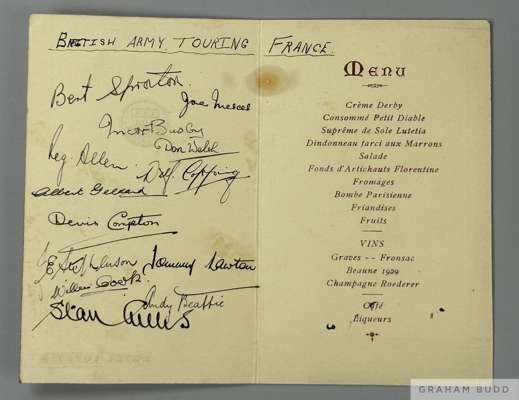 BRITISH ARMY TOURING FRANCE
Bert Sproston
Joe Mercer
Matt Busby
Don Welsh
Reg. Allen
W. Copping
Albert Geldard
Denis Compton
Stephenson
Tommy Lawton
William Cook
Andy Beattie
Stan Cullis
Menu
Crème Derby
Consommé Petit Diable
Suprême de Sole Lutetia
Dindonneau farci aux Marrons
Salade
Fonds d'Artichauts Florentine
Fromages
Bombe Parisienne
Friandises
Fruits
VINS
Graves -- Fronsac
Beaune 1929
Champagne Roederer
Café
Liqueurs
GRAHAM BUDD